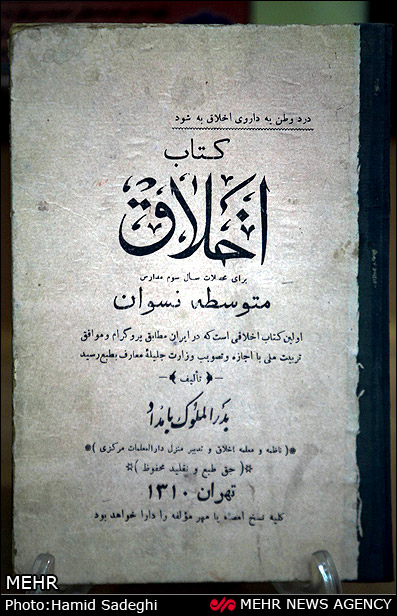 درد وطن به داروی اخلاق به شود
کتاب
اخلاق
برای محصلات سال سوم مدارس
متوسطه نسوان
اولین کتاب اخلاقی است که در ایران مطابق پروگرام و موافق
تربیت ملی با اجازه و تصویب وزارت جلیلهٔ معارف بطبع رسید
تألیف
بدرالملوک بامداد
(ناظمه و معلمه اخلاق و تدبیر منزل دارالمعلمات مرکزی)
(حق طبع و تقلید محفوظ)
تهران ۱۳۱۰
کلیه نسخ امضاء یا مهر مؤلفه را دارا خواهد بود
MEHR
Photo:Hamid Sadeghi
MEHR NEWS AGENCY